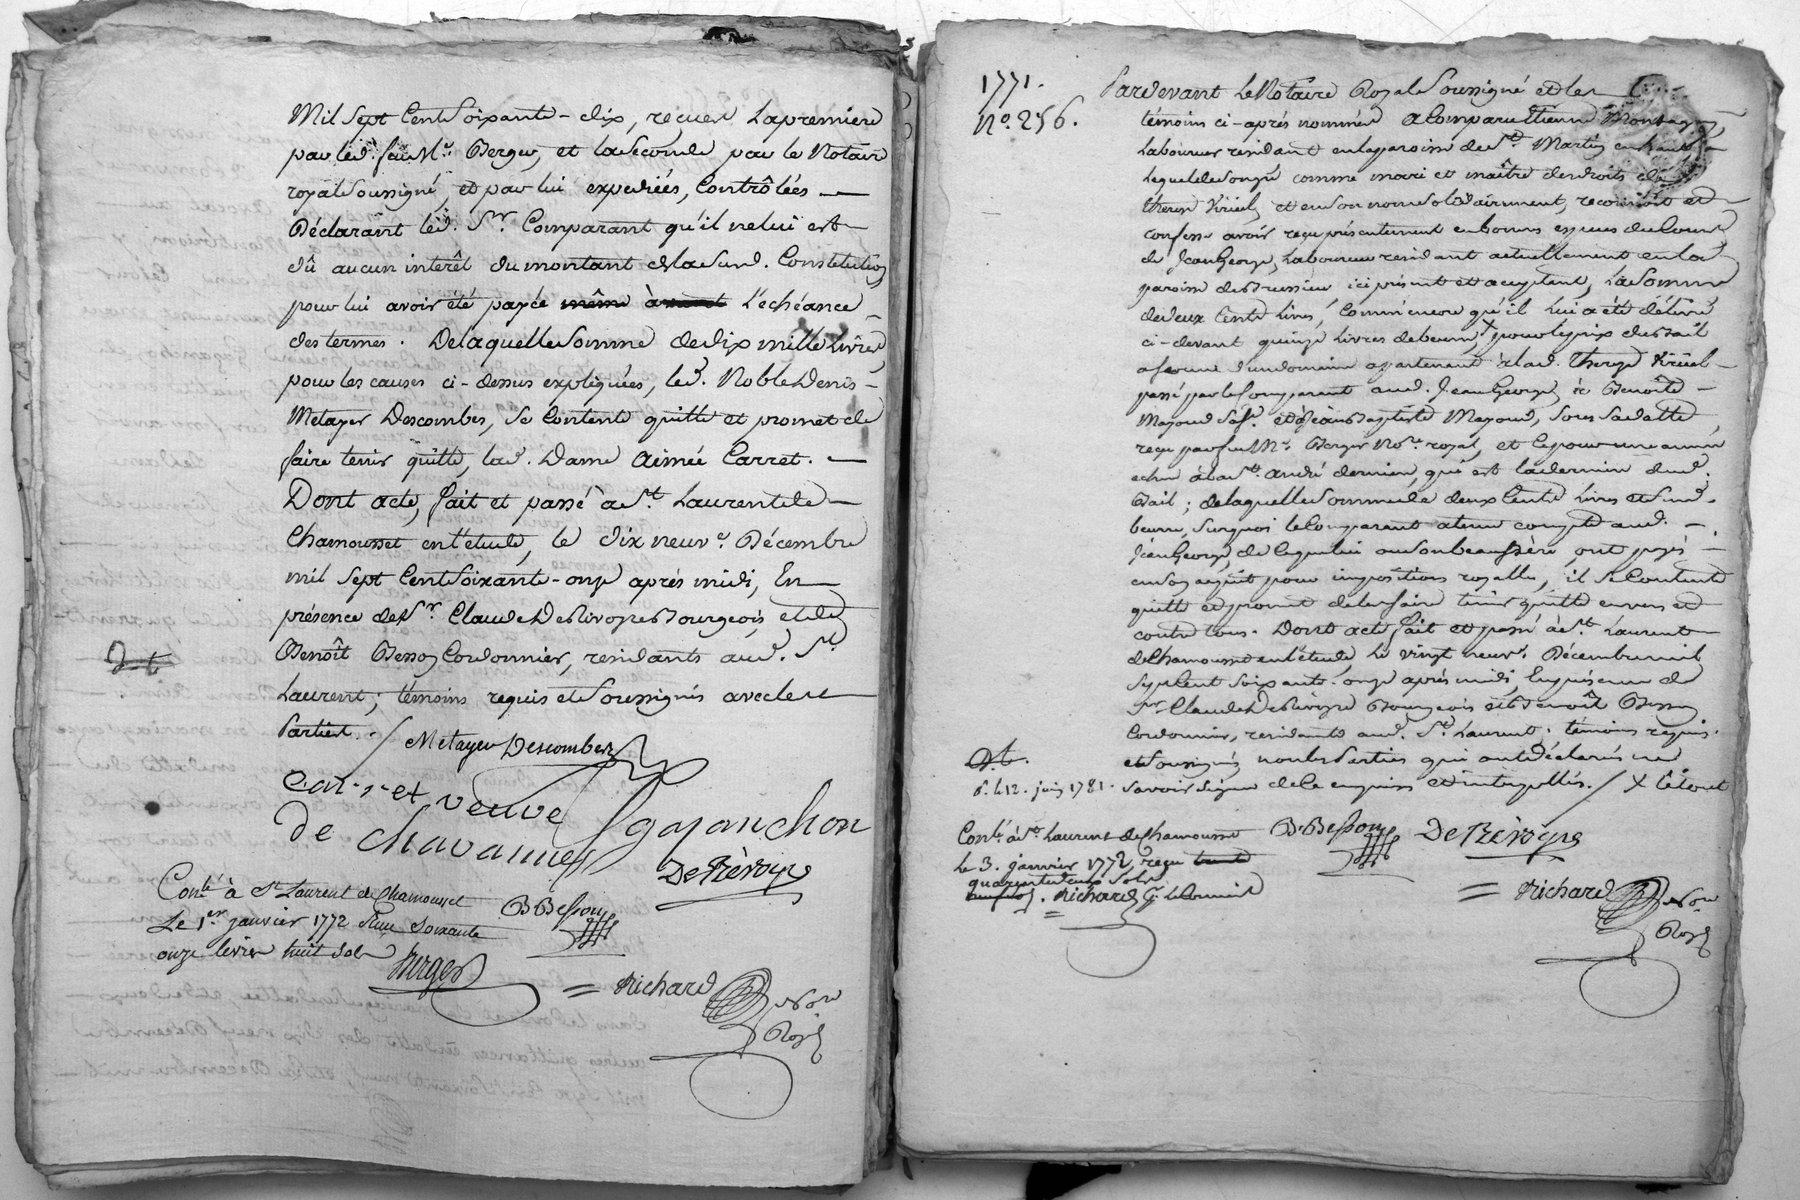 Mil Sept Cent Soixante-dix, reçues La premiere
par led. feu Me. Berger, et la Seconde par le Notaire
royal Soussigné, et par lui expediées, Contrôlées —
Déclarant led. Sr. Comparant qu'il ne lui est
dû aucun interêt du montant de lad. Constitution
pour lui avoir été payée même à L'echéance
des termes. De laquelle Somme de dix mille Livres
pour les causes ci-dessus expliquées, led. Noble Denis
Metayer Descombes, Se Contente quitte et promet de
faire tenir quitte, lad. Dame Aimée Carret. —
Dont acte, fait et passé à St. Laurent de
Chamousset en l'etude, le dix neuve. Décembre
mil Sept Cent Soixante-onze après midi, En
présence de Sr. Claude De Rivoyre Bourgeois et de
Benoît Besson Cordonnier, residants aud. St.
Laurent; témoins requis et Soussignés avec les
Parties. /. Metayer Descombes
Carret veuve
de chavannes gajanchon
De Rivoyre
Conlé. à St Laurent de Chamousset
Le 1er janvier 1772 Reçu Soixante
onze livres huit Sols
Berger
B Besson
= Richard Nore
Royal
1771.
No. 256.
Pardevant Le Notaire Royal Soussigné et les
témoins ci-après nommés a Comparu Etienne Montagny,
Laboureur residant en la paroisse de St. Martin en haut
Lequel de Son gré comme mari et maître des droits de
therese et en Son nom Solidairement, reconnoit et
confesse avoir reçu présentement en bonnes especes du Cours
de Jean George, Laboureur residant actuellement en lad.
paroisse de Bressieu ici présent et acceptant, La Somme
de deux Cents Livres, Comm' encore qu'il Lui a été délivré
ci-devant quinze Livres de beurre, X pour le prix du bail
a ferme d'un domaine appartenant à lad. Therese
passé par le Comparant aud. Jean George, & Benoîte
Mayoud Sa fe. et à Jean Baptiste Mayoud, Sous Sa datte
reçu par feu Me. Berger Nore. royal, et ce pour une année
echue à la St. andré dernier, qui est la derniere dud.
Bail; de laquelle Somme de deux Cents Livres et Sud.
beurre, Surquoi le Comparant a tenu compte aud. —
Jean George, de ce que lui ou Son beaufrère, ont payés —
en Son acquit pour impositions royalles, il Se Contente
quitte et promet de le faire tenir quitte envers et
contre tous. Dont acte fait et passé à St. Laurent
de Chamousset en l'étude Le vingt neuve. Décembre mil
Sept Cent Soixante-onze après midi, En présence de
Sr. Claude De Rivoyre Bourgeois et Benoît Besson
Cordonnier, residants aud. St. Laurent, témoins requis
et Soussignés, non les Parties qui ont déclarés ne
Savoir Signer de ce enquises et interpellés. / X le tout
12. juin 1781.
Conlé. à St. Laurent de Chamousset
le 3. janvier 1772 reçu
quarante deux Sols
Richard
B Besson De Rivoyre
= Richard Nore
Royal